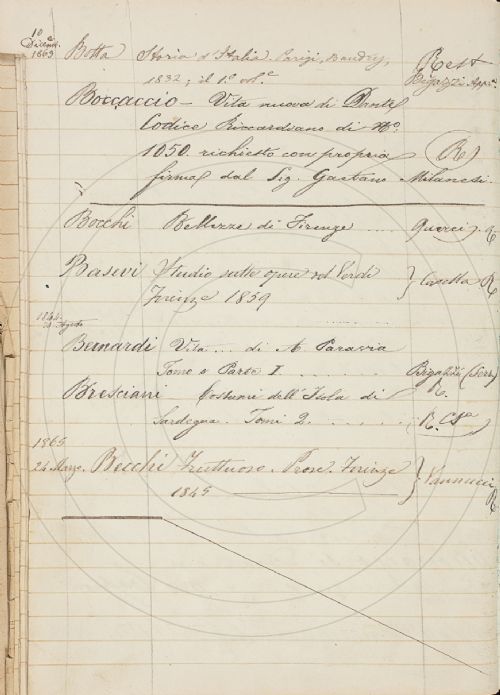 10
Dicem.e
1863
Botta Storia d'Italia. Parigi, Baudry, Rest
1832; il 1.o vol.e Bigazzi App.
Boccaccio - Vita nuova di Dante
Codice Riccardiano di N.o
1050. richiesto con propria (R)
firma dal Sig. Gaetano Milanesi.
Bocchi Bellezze di Firenze .... Querci). R
Basevi Studio sulle opere del Verdi } Casella R
Firenze 1859
1864.
Agosto
Bernardi Vita ... di A. Paravia
Tomo e Parte I. ........ Rigabili
R.
Bresciani Costumi dell'Isola di
Sardegna. Tomi 2. ...... R.
1865
24 Marzo. Becchi Fruttuoso. Prose. Firenze } Vannucci
1845 R